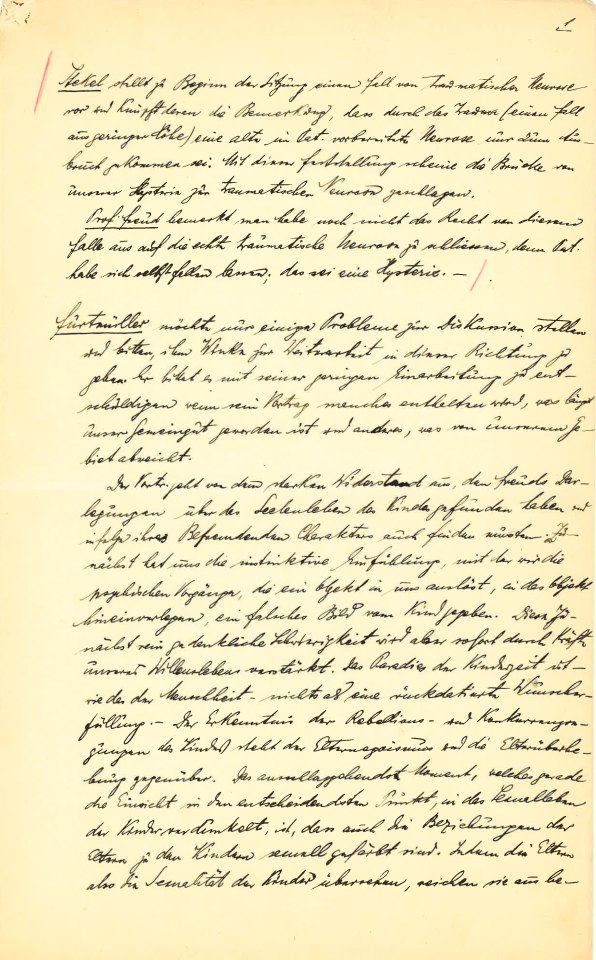 1
Stekel stellt zu Beginn der Sitzung einen Fall von traumatischer Neurose
vor und knüpft daran die Bemerkung, dass durch das Trauma (einen Fall
aus geringer Höhe) eine alte im Pat. vorbereitete Neurose nur zum Aus-
bruch gekommen sei. Mit dieser Feststellung scheine die Brücke von
unserer Hysterie zur traumatischen Neurose geschlagen.
Prof. Freud bemerkt, man habe noch nicht das Recht von diesem
Falle aus auf die echte traumatische Neurose zu schliessen, denn Pat.
habe sich selbst fallen lassen; das sei eine Hysterie. —
Furtmüller möchte nur einige Probleme zur Diskussion stellen
und bitten, ihm Winke zur Weiterarbeit in dieser Richtung zu
geben. Er bittet es mit seiner geringen Einarbeitung zu ent-
schuldigen wenn sein Vortrag manches enthalten wird, was längst
unser Gemeingut geworden ist und anderes, was von unserem Ge-
biet abweicht.
Der Vortr. geht von dem starken Widerstand aus, den Freuds Dar-
legungen über das Seelenleben des Kindes gefunden haben und
infolge ihres Befremdenden Charakters auch finden mussten. Zu-
nächst hat uns die instinktive Einfühlung, mit der wir die
psychischen Vorgänge, die ein Objekt in uns auslöst, in das Objekt
hineinverlegen, ein falsches Bild vom Kind gegeben. Diese zu-
nächst rein gedankliche Schwierigkeit wird aber sofort durch Kräfte
unseres Willenslebens verstärkt. Das Paradies der Kinderzeit ist —
wie das der Menschheit — nichts als eine rückdatierte Wunscher-
füllung. — Der Erkenntnis der Rebellions- und Konkurrenzre-
gungen des Kindes steht der Elternegoismus und die Elternüberhe-
bung gegenüber. Das ausschlaggebendste Moment, welches gerade
die Einsicht in den entscheidendsten Punkt, in das Sexualleben
der Kinder verdunkelt, ist, dass auch die Beziehungen der
Eltern zu den Kindern sexuell gefärbt sind. Indem die Eltern
also die Sexualität der Kinder übersehen, weichen sie aus be-